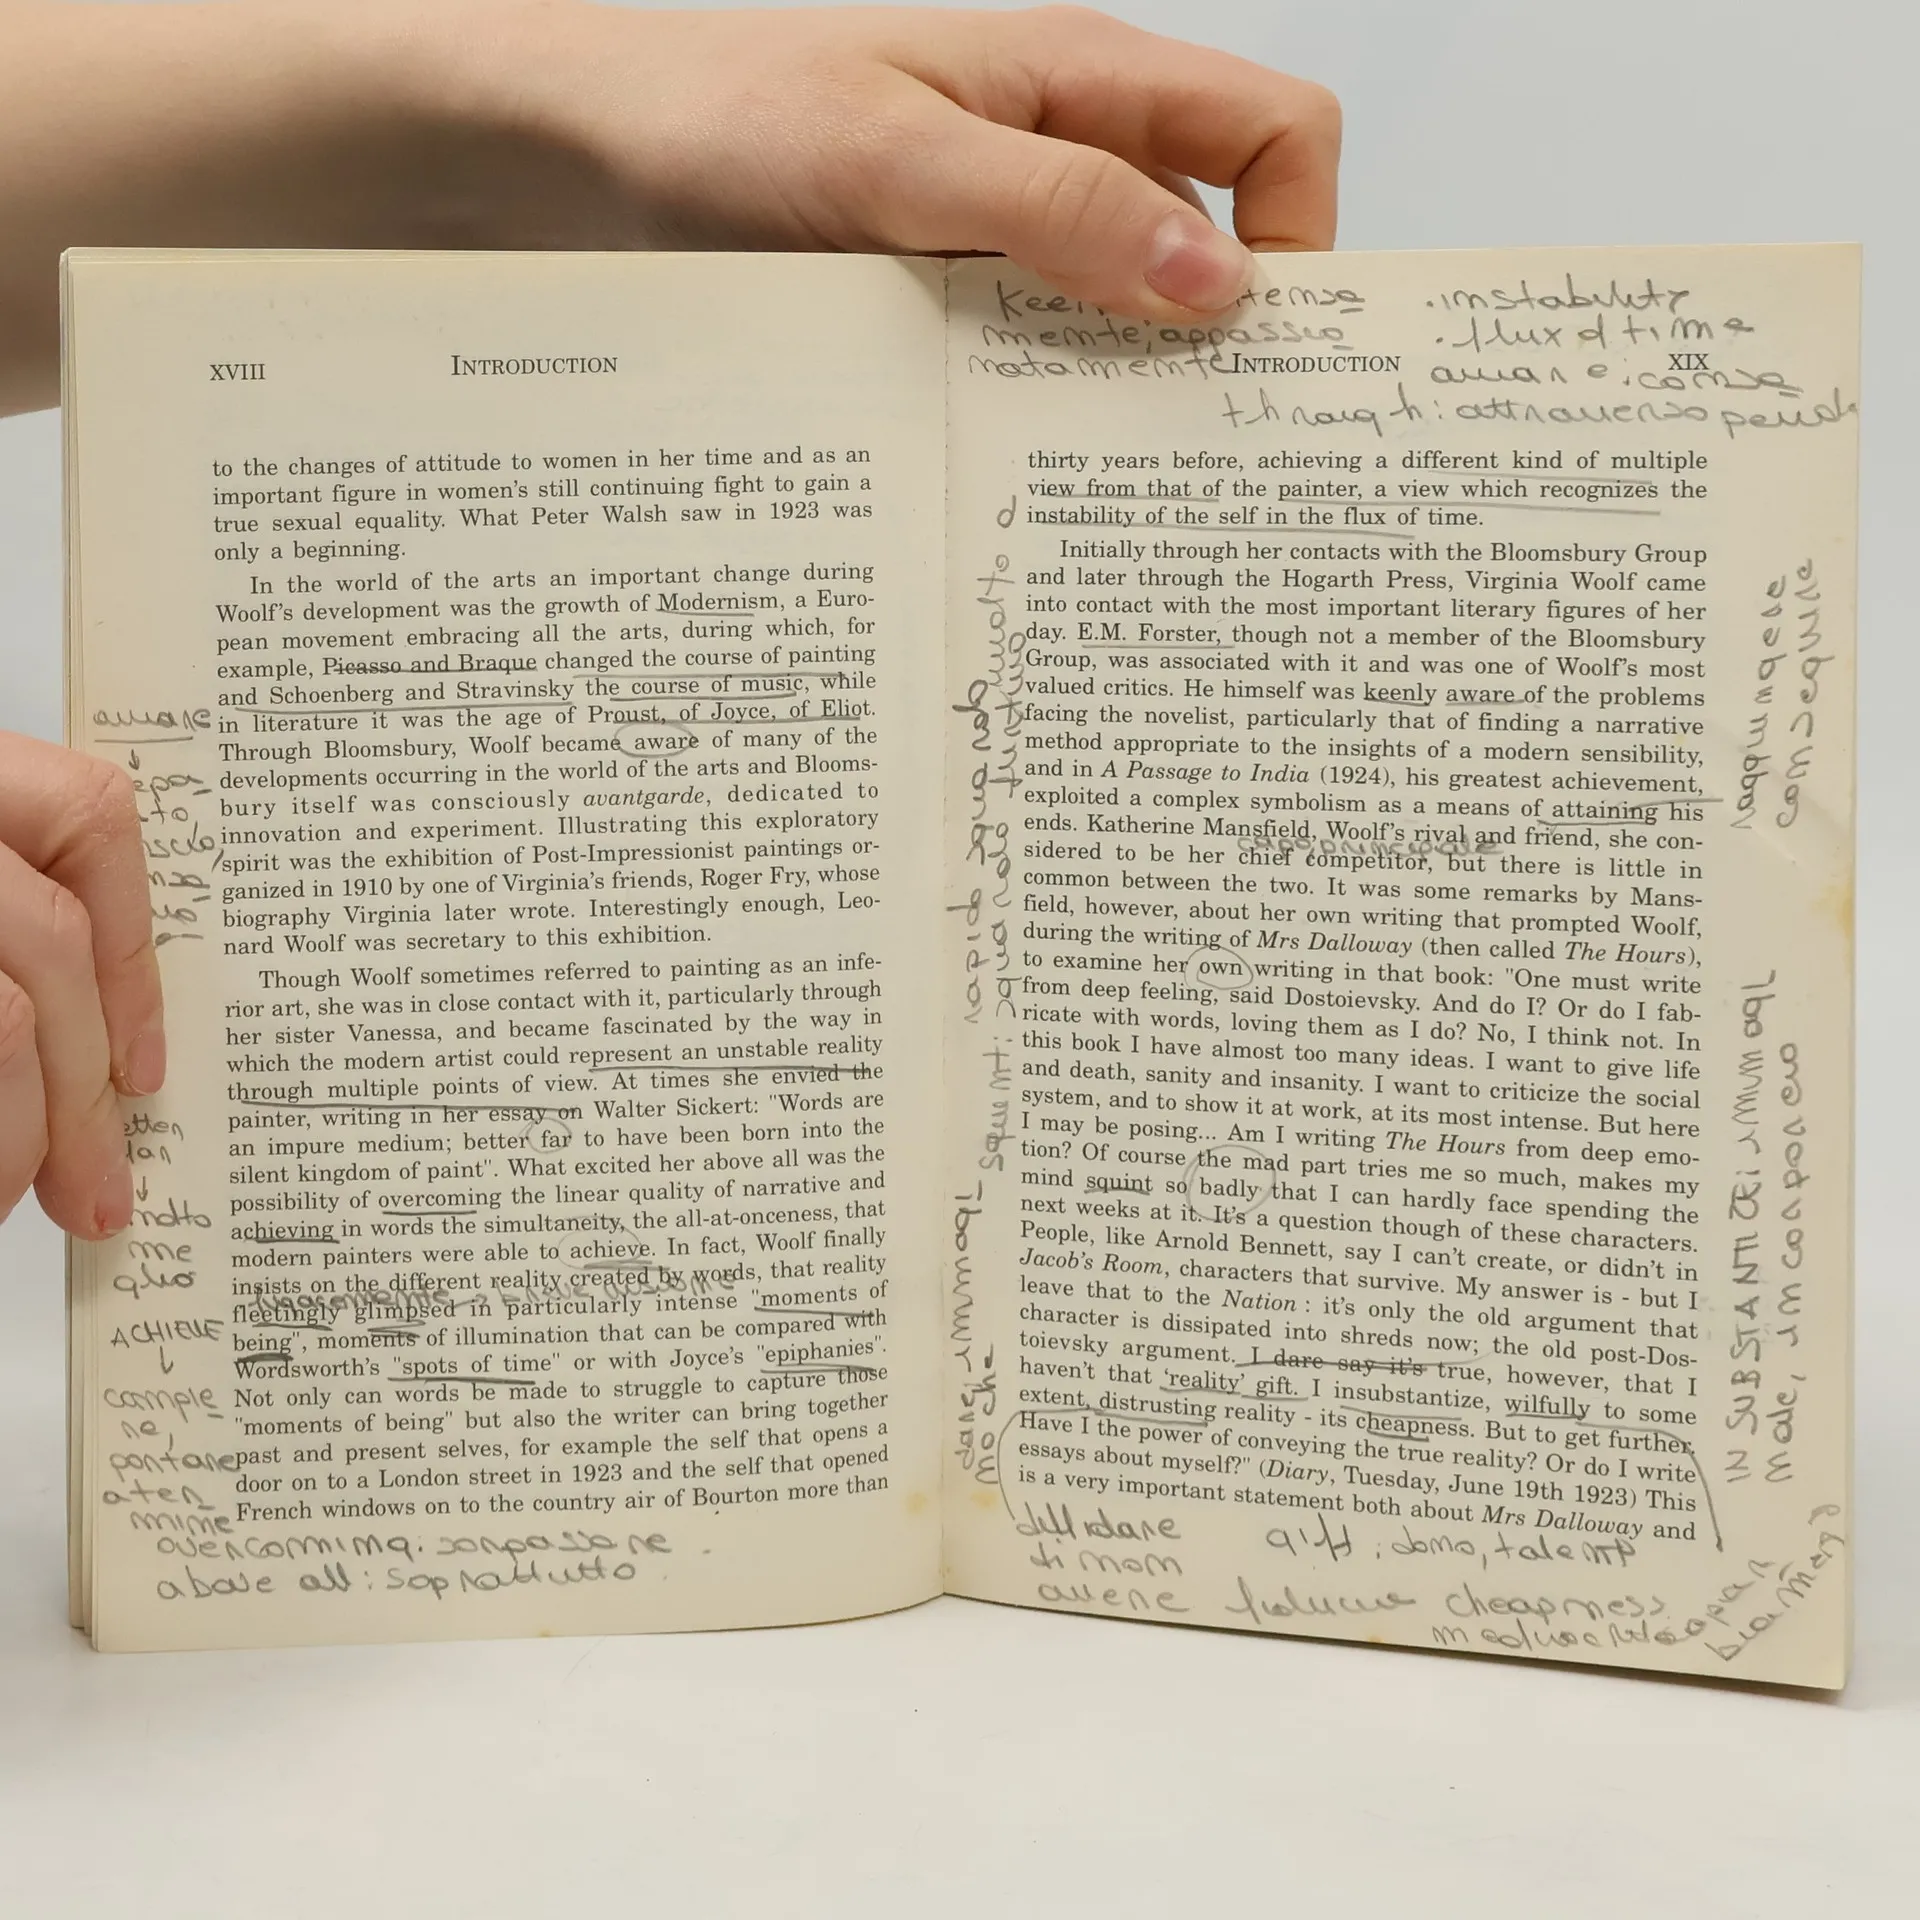 XVIII
INTRODUCTION
to the changes of attitude to women in her time and as an
important figure in women's still continuing fight to gain a
true sexual equality. What Peter Walsh saw in 1923 was
only a beginning.
In the world of the arts an important change during
Woolf's development was the growth of Modernism, a Euro-
pean movement embracing all the arts, during which, for
example, Picasso and Braque changed the course of painting
and Schoenberg and Stravinsky the course of music, while
in literature it was the age of Proust, of Joyce, of Eliot.
Through Bloomsbury, Woolf became aware of many of the
developments occurring in the world of the arts and Blooms-
bury itself was consciously avantgarde, dedicated to
innovation and experiment. Illustrating this exploratory
spirit was the exhibition of Post-Impressionist paintings or-
ganized in 1910 by one of Virginia's friends, Roger Fry, whose
biography Virginia later wrote. Interestingly enough, Leo-
nard Woolf was secretary to this exhibition.
Though Woolf sometimes referred to painting as an infe-
rior art, she was in close contact with it, particularly through
her sister Vanessa, and became fascinated by the way in
which the modern artist could represent an unstable reality
through multiple points of view. At times she envied the
painter, writing in her essay on Walter Sickert: "Words are
an impure medium; better far to have been born into the
silent kingdom of paint". What excited her above all was the
possibility of overcoming the linear quality of narrative and
achieving in words the simultaneity, the all-at-onceness, that
modern painters were able to achieve. In fact, Woolf finally
insists on the different reality created by words, that reality
fugacemente
fleetingly glimpsed in particularly intense "moments of
being", moments of illumination that can be compared with
Wordsworth's "spots of time" or with Joyce's "epiphanies".
Not only can words be made to struggle to capture those
"moments of being" but also the writer can bring together
past and present selves, for example the self that opens a
door on to a London street in 1923 and the self that opened
French windows on to the country air of Bourton more than
aware
me
glio
ACHIEVE
compie
re,
portare
a ter
mine
overcoming: sorpassare
above all: soprattutto
mente; appassio
natamente
. instability
. flux of time
aware: conso
through: attraverso
INTRODUCTION
XIX
thirty years before, achieving a different kind of multiple
view from that of the painter, a view which recognizes the
instability of the self in the flux of time.
Initially through her contacts with the Bloomsbury Group
and later through the Hogarth Press, Virginia Woolf came
into contact with the most important literary figures of her
day. E.M. Forster, though not a member of the Bloomsbury
Group, was associated with it and was one of Woolf's most
valued critics. He himself was keenly aware of the problems
facing the novelist, particularly that of finding a narrative
method appropriate to the insights of a modern sensibility,
and in A Passage to India (1924), his greatest achievement,
exploited a complex symbolism as a means of attaining his
ends. Katherine Mansfield, Woolf's rival and friend, she con-
capo, principale
sidered to be her chief competitor, but there is little in
common between the two. It was some remarks by Mans-
field, however, about her own writing that prompted Woolf,
during the writing of Mrs Dalloway (then called The Hours),
to examine her own writing in that book: "One must write
from deep feeling, said Dostoievsky. And do I? Or do I fab-
ricate with words, loving them as I do? No, I think not. In
this book I have almost too many ideas. I want to give life
and death, sanity and insanity. I want to criticize the social
system, and to show it at work, at its most intense. But here
I may be posing... Am I writing The Hours from deep emo-
tion? Of course the mad part tries me so much, makes my
mind squint so badly that I can hardly face spending the
next weeks at it. It's a question though of these characters.
People, like Arnold Bennett, say I can't create, or didn't in
Jacob's Room, characters that survive. My answer is - but I
leave that to the Nation : it's only the old argument that
character is dissipated into shreds now; the old post-Dos-
toievsky argument. I dare say it's true, however, that I
haven't that 'reality' gift. I insubstantize, wilfully to some
extent, distrusting reality - its cheapness. But to get further.
Have I the power of conveying the true reality? Or do I write
essays about myself?" (Diary, Tuesday, June 19th 1923) This
is a very important statement both about Mrs Dalloway and
raggiungere
conseguire
INSUBSTANTIZE: immagi
nale, incorporeo
squint: rapido sguardo
sguardo furtivo
dare: immagi
no che
diffidare
non
avere fiducia
gift: dono, talento
cheapness